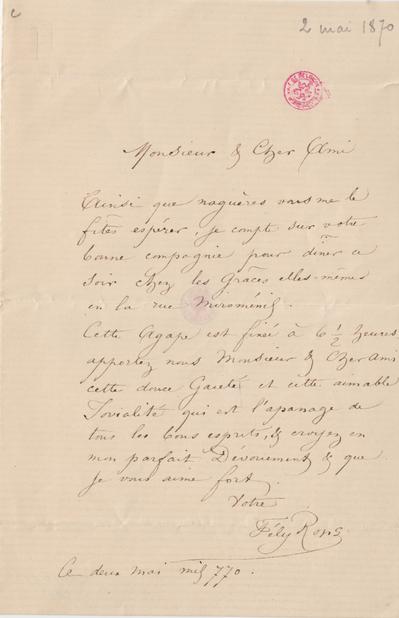 2 mai 1870
Monsieur & Cher Ami
Ainsi que naguères vous me le
fîtes espérer, je compte sur votre
bonne compagnie pour dîner ce
soir chez les Grâces elles-mêmes
en la rue Miroménil.
Cette Agape est fixée à 6 ½ heures
apportez nous Monsieur & Cher Ami
cette douce Gaieté et cette aimable
Jovialité qui est l'apanage de
tous les bons esprits, & croyez en
mon parfait Dévouement & que
je vous aime fort.
Votre
Fély Rops
Ce deux mai mil 770.